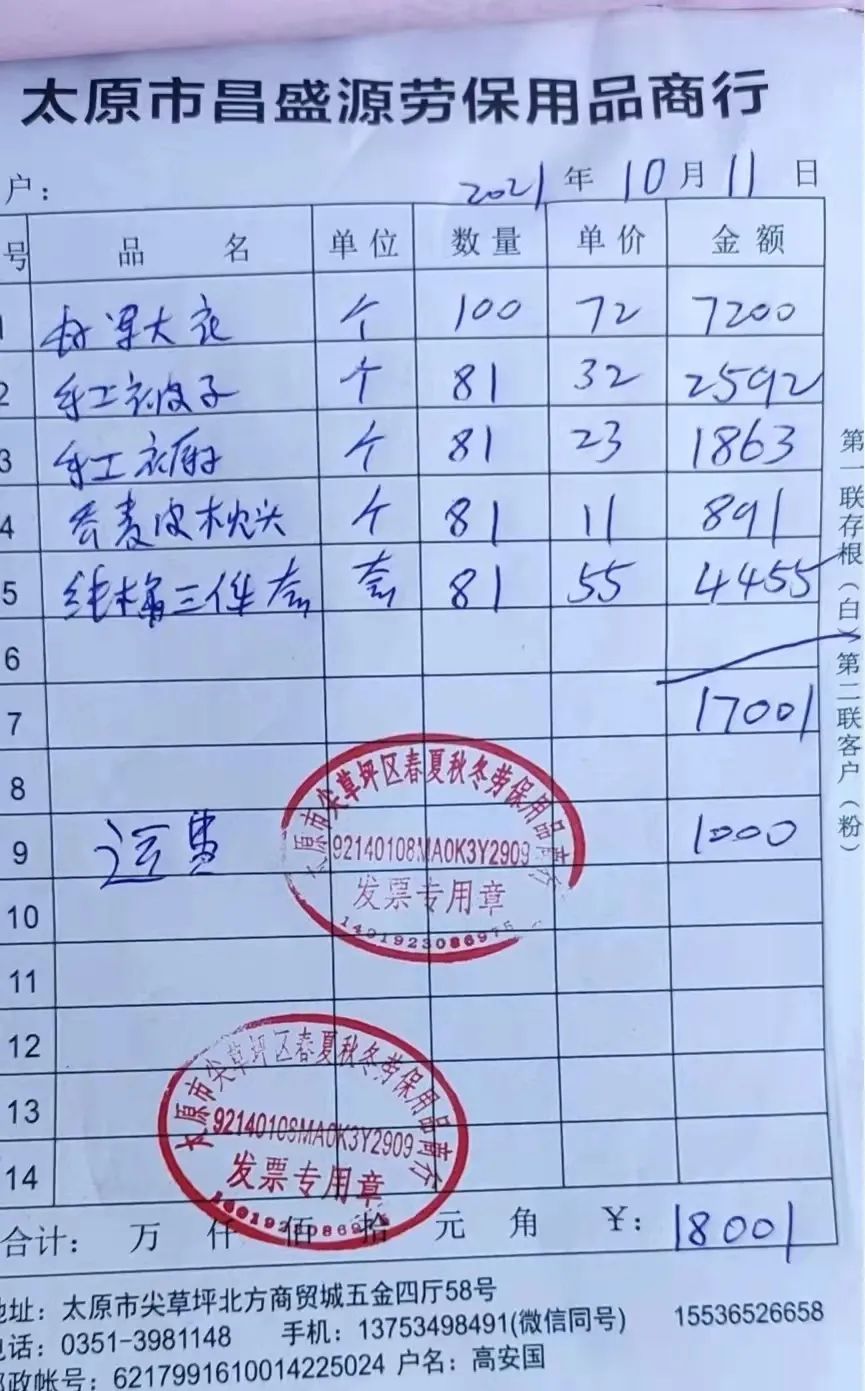 太原市昌盛源劳保用品商行
户: 2021年10月11日
号 品名 单位 数量 单价 金额
1 大衣 个 100 72 7200
2 手工 子 个 81 32 2592
3 手工 个 81 23 1863
4 荞麦皮枕头 个 81 11 891
5 纯棉三件套 套 81 55 4455
6
7 17001
8
9 运费 1000
10
11
12
13
14
太原市尖草坪区春夏秋冬劳保用品商行
92140108MA0K3Y2909
发票专用章
太原市尖草坪区春夏秋冬劳保用品商行
92140108MA0K3Y2909
发票专用章
合计: 万 仟 佰 拾 元 角 ¥: 18001
地址: 太原市尖草坪北方商贸城五金四厅58号
电话: 0351-3981148 手机: 13753498491(微信同号) 15536526658
邮政帐号: 6217991610014225024 户名: 高安国
第一联存根(白)第二联客户(粉)